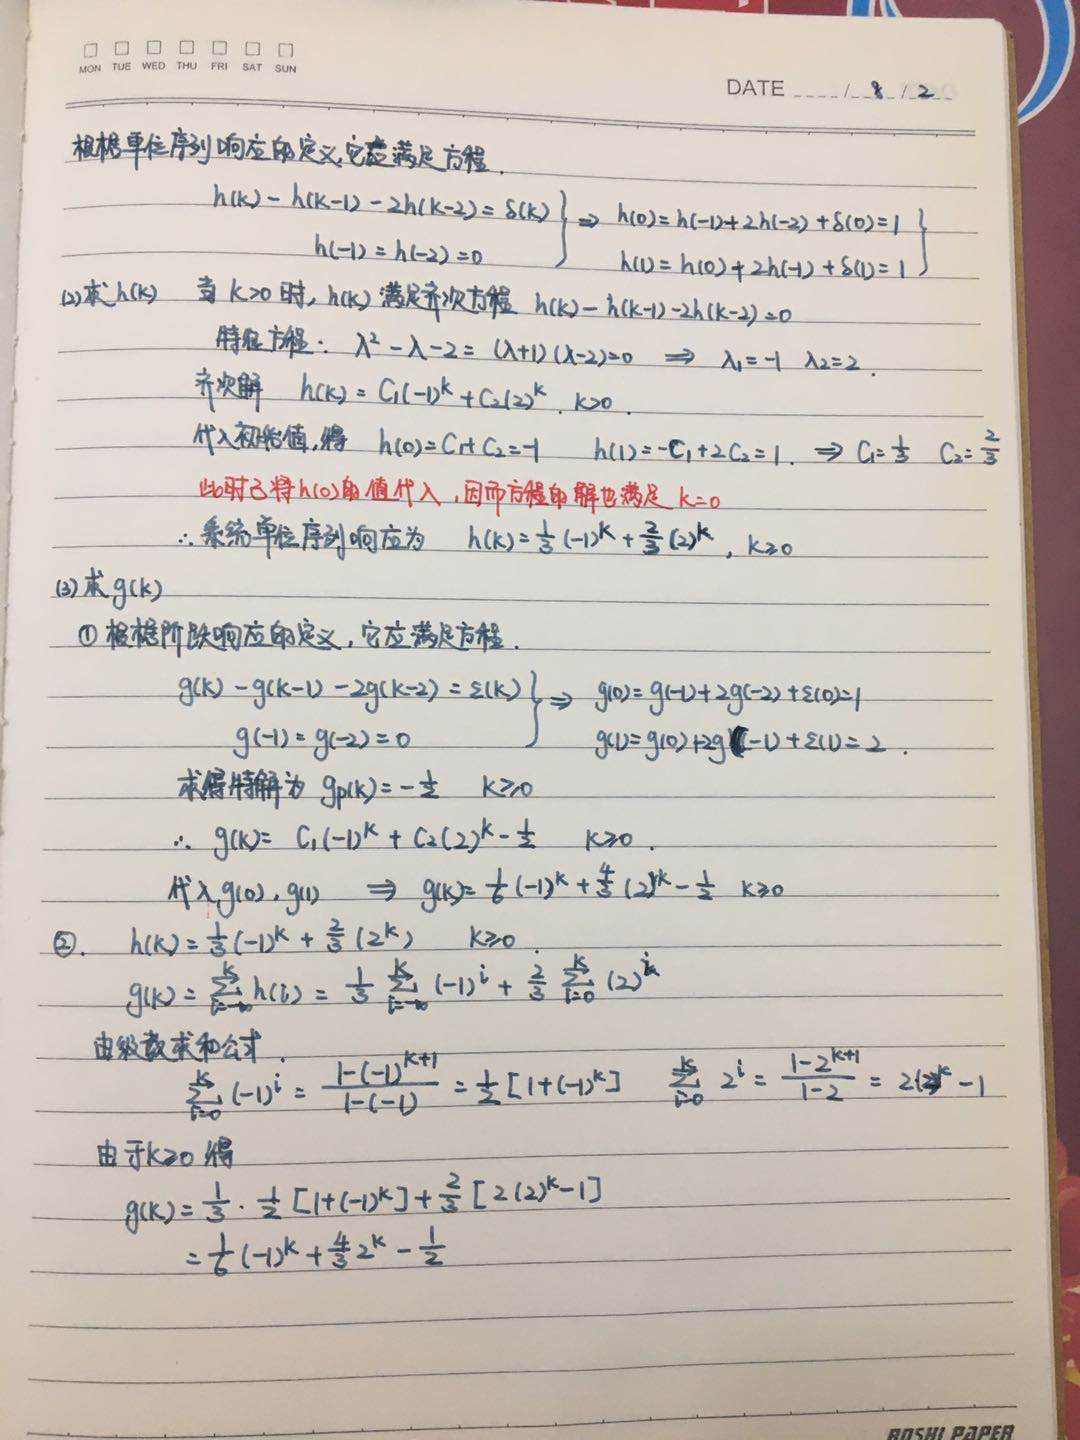 MON TUE WED THU FRI SAT SUN
DATE ____/__8__/__2__
根据单位序列响应的定义,它应满足方程.
h(k)-h(k-1)-2h(k-2)=δ(k) } ⇒ h(0)=h(-1)+2h(-2)+δ(0)=1 }
h(-1)=h(-2)=0 h(1)=h(0)+2h(-1)+δ(1)=1
(2)求h(k) 当k>0时,h(k)满足齐次方程 h(k)-h(k-1)-2h(k-2)=0
特征方程. λ²-λ-2=(λ+1)(λ-2)=0 ⇒ λ₁=-1 λ₂=2.
齐次解 h(k)=C₁(-1)^k+C₂(2)^k. k>0.
代入初始值,得 h(0)=C₁+C₂=-1 h(1)=-C₁+2C₂=1. ⇒ C₁=1/3 C₂=2/3
此时已将h(0)的值代入,因而方程的解也满足 k=0
∴系统单位序列响应为 h(k)=1/3(-1)^k+2/3(2)^k, k≥0
(3)求g(k)
①根据阶跃响应的定义,它应满足方程.
g(k)-g(k-1)-2g(k-2)=ε(k) } ⇒ g(0)=g(-1)+2g(-2)+ε(0)=1
g(-1)=g(-2)=0 g(1)=g(0)+2g(-1)+ε(1)=2.
求得特解为 gp(k)=-1/2 k≥0
∴ g(k)=C₁(-1)^k+C₂(2)^k-1/2 k≥0.
代入g(0),g(1) ⇒ g(k)=1/6(-1)^k+4/3(2)^k-1/2 k≥0
②. h(k)=1/3(-1)^k+2/3(2^k) k≥0.
g(k)=∑_{i=-∞}^{k}h(i)=1/3∑_{i=-∞}^{k}(-1)^i+2/3∑_{i=0}^{k}(2)^i
由级数求和公式.
∑_{i=0}^{k}(-1)^i=(1-(-1)^{k+1})/(1-(-1))=1/2[1+(-1)^k] ∑_{i=0}^{k}2^i=(1-2^{k+1})/(1-2)=2(2)^k-1
由于k≥0 得
g(k)=1/3·1/2[1+(-1)^k]+2/3[2(2)^k-1]
=1/6(-1)^k+4/3 2^k-1/2
BOSHI PAPER